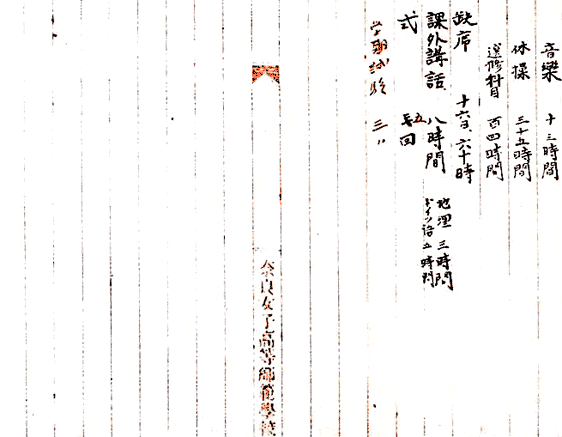 音樂 十三時間
体操 三十五時間
選修科目 百四時間
欠席 十六日、六十時
課外講話 八時間 地理 三時間
ドイツ語 五時間
式 五回
学期試験 三〃
奈良女子高等師範學校